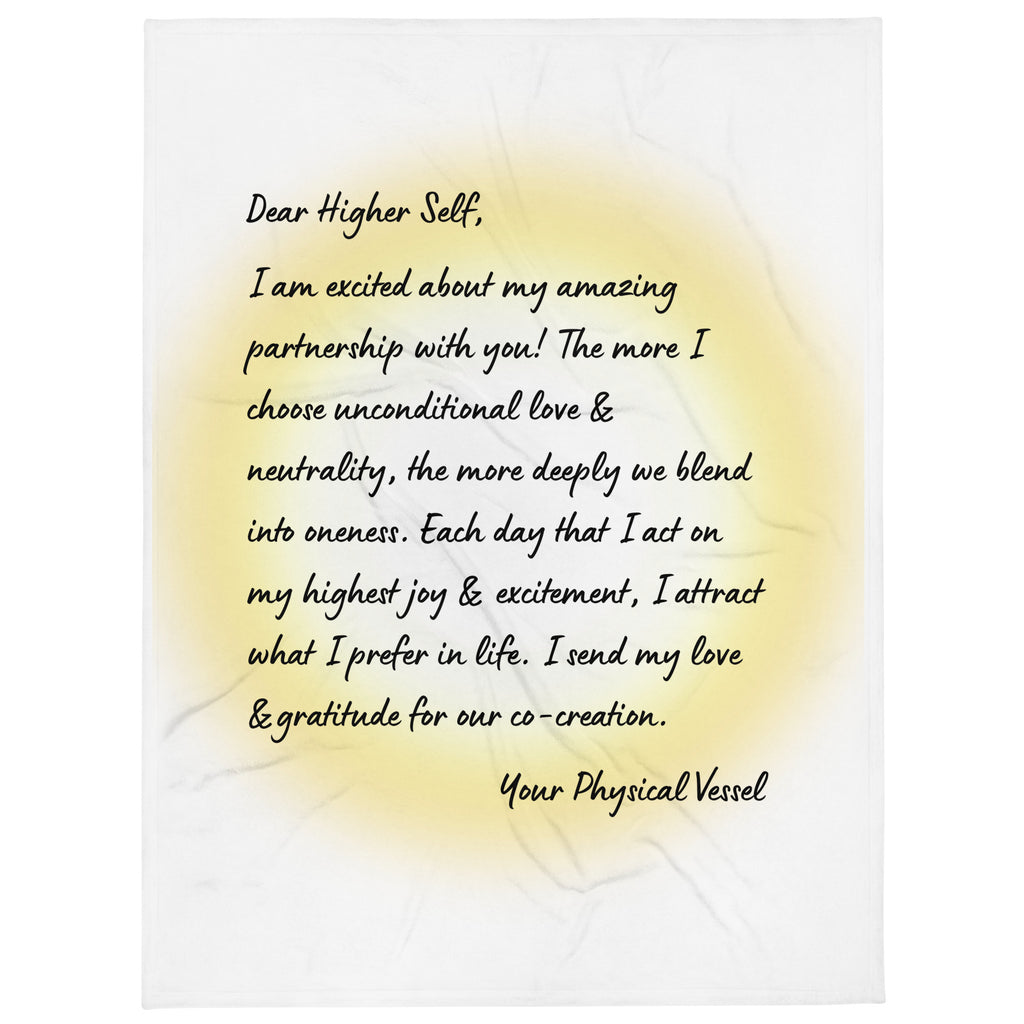 Dear Higher Self,
I am excited about my amazing
partnership with you! The more I
choose unconditional love &
neutrality, the more deeply we blend
into oneness. Each day that I act on
my highest joy & excitement, I attract
what I prefer in life. I send my love
& gratitude for our co-creation.
Your Physical Vessel